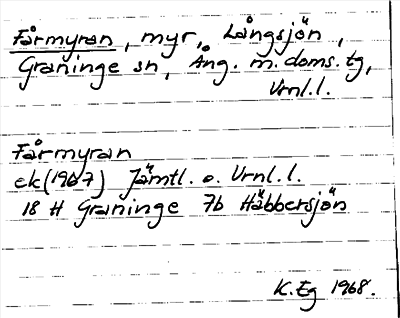 Fårmyran, myr, Långsjön,
Graninge sn, Ång. m. doms. tg,
Vrnl.l.
Fårmyran
ek (1967) Jämtl. o. Vrnl. l.
18 H Graninge 7b Häbbersjön
K. Eg 1968.